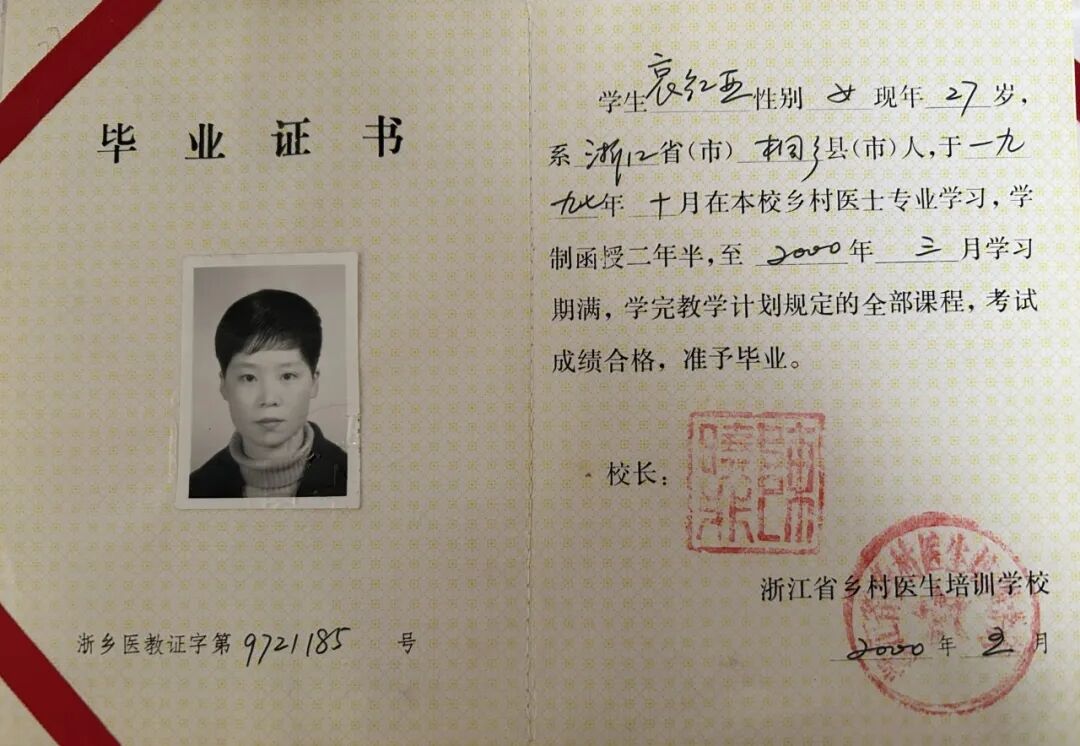 毕业证书
浙乡医教证字第9721185号
学生袁红亚性别 女 现年 27 岁，
系 浙江 省（市） 桐乡 县（市）人，于一九
九七年 十月在本校乡村医士专业学习，学
制函授二年半，至 2000 年 三 月学习
期满，学完教学计划规定的全部课程，考试
成绩合格，准予毕业。
校长：
浙江省乡村医生培训学校
2000 年 月